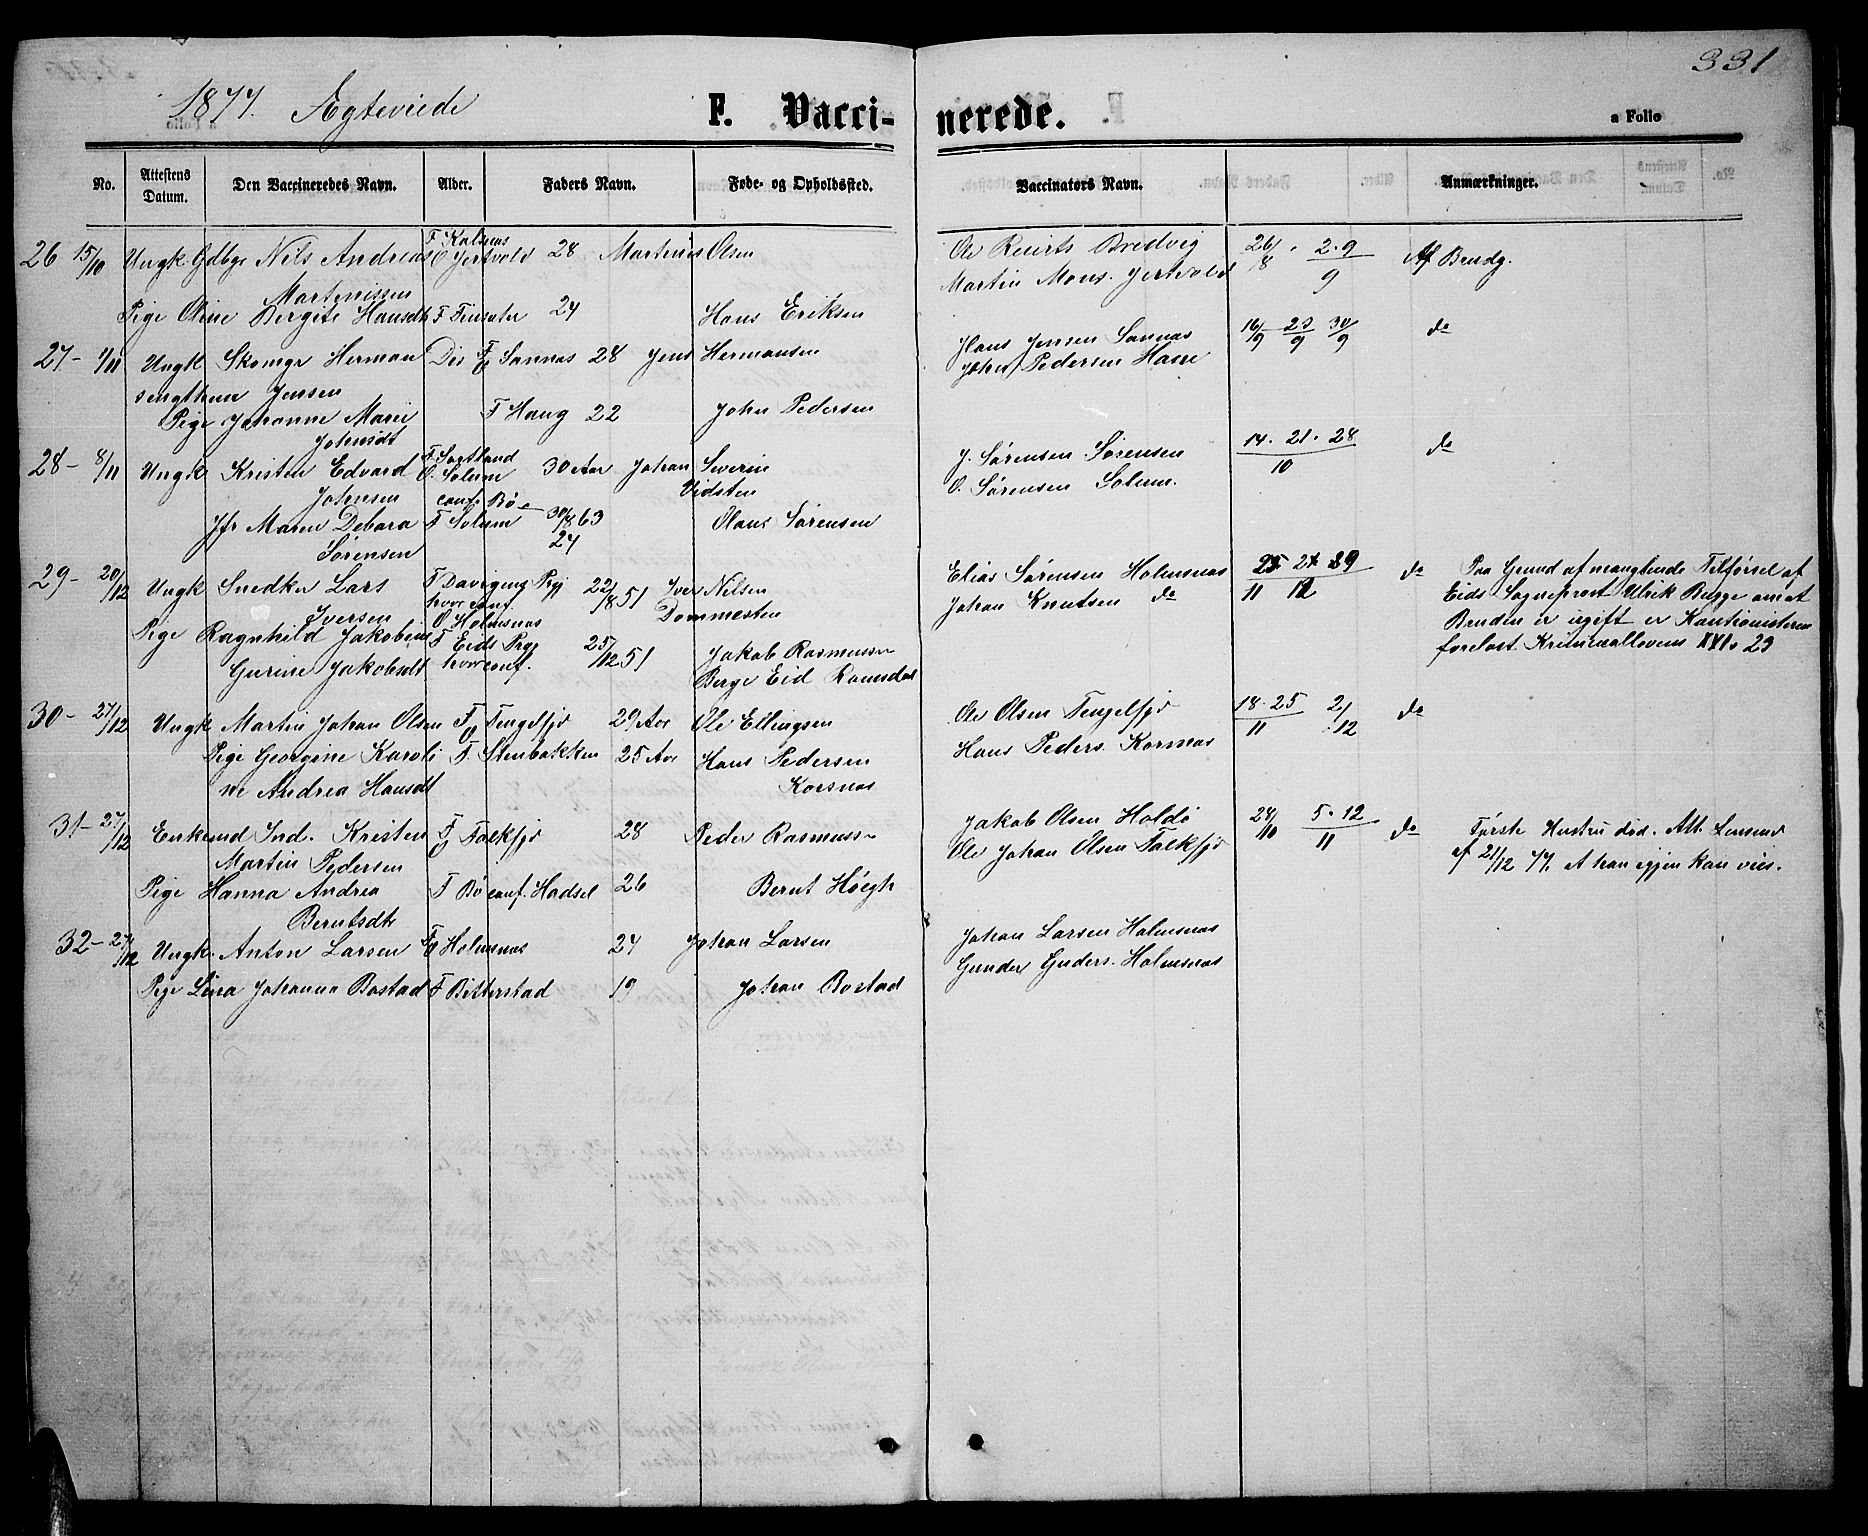 331
1877. Ægteviede
F. Vaccinerede.
a Folio
No. Attestens Datum. Den Vaccineredes Navn. Alder. Faders Navn. Føde- og Opholdssted. Vaccinators Navn. Anmærkninger.
26 15/10 Ungk. Gdbgr Nils Andreas Martenissen F Kalsnæs O Jertvold 28 Martenus Olsen Ole Reierts Bredvig 26/8 . 2 . 9/9 Af Brudg.
Martin Mons. Jertvold
Pige Oline Bergite Hansdtr F Finsæter 24 Hans Eriksen
27 - 1/11 Ungk Skomgr Herman F Sannæs 28 Jens Hermansen Hans Jensen Sannæs 16/9 23/9 30/9 do
Jensen John Pedersen Haug
Pige Johanne Marie Johnsdt F Haug 22 John Pedersen
28 - 8/11 Ungk Kristen Edvard Johnsen F Sortland O. Solum conf. Bø 30 Aar Johan Severin Vidsten J. Sørensen Sørensen 14 . 21 . 28/10 do
O. Sørensen Solum.
Jfr Maren Debora Sørensen F Solum 30/8 63 24 Olaus Sørensen
29 - 20/12 Ungk Snedker Lars Iversen F Davigens Pgj hvor conf. O Holmsnæs 22/8 51 Iver Nilsen Dommesten Elias Sørensen Holmsnæs 25/11 29/12 do Paa Grund af manglende Tilførsel af
Johan Knutsen do Eids Sogneprest Ulrik Bugge om at
Pige Ragnhild Jakobine Gurine Jakobsdt F Eids Prgj hvor conf. 25/12 51 Jakob Rasmussn Berge Eid Romsdal Bruden er ugift er Kautionisterne
forelæst Kriminallovens XXI. 29
30 - 27/12 Ungk Martin Johan Olsen F Tengelfjo 29 Aar Ole Ellingsen Ole Olsen Tengelfjo 18 . 25/11 2/12 do
Hans Peders. Korsnæs
Pige Georgine Karoline Andrea Hansdt F. Stenbakken 25 Aar Hans Pedersen Korsnæs
31 - 27/12 Enkemd Ind. Kristen Martin Pedersen F Falkfjo 28 Peder Rasmussn Jakob Olsen Holdø 28/10 5 . 12/11 do Første Hustru død. Att. Lensmd
Ole Johan Olsen Falkfjo af 21/12 77. At han igjen kan vies.
Pige Hanna Andrea Berntsdtr F Bø conf. Hadsel 26 Bernt Høegh
32 - 27/12 Ungk. Anton Larsen F Holmsnæs 24 Johan Larsen Johan Larsen Holmsnæs
Gunder Gnders. Holmsnæs
Pige Lina Johanna Bostad F Bitterstad 19 Johan Bostad